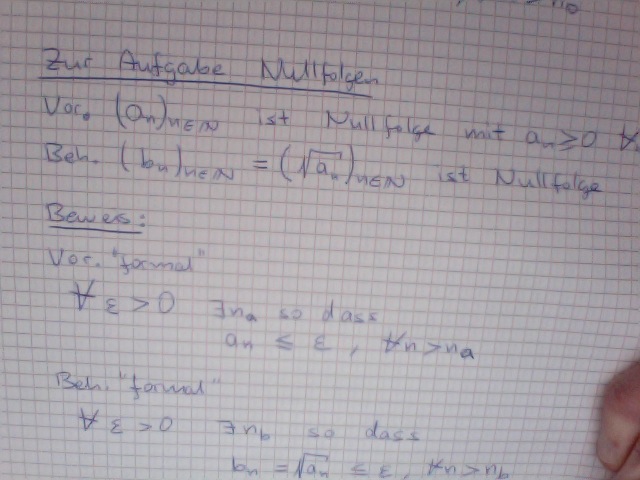 n₀
Zur Aufgabe Nullfolgen
Vor. (aₙ)ₙ∈ℕ ist Nullfolge mit aₙ ≥ 0 ∀
Beh. (bₙ)ₙ∈ℕ = (√aₙ)ₙ∈ℕ ist Nullfolge
Beweis:
Vor. "formal"
∀ ε > 0 ∃nₐ so dass
aₙ ≤ ε, ∀n > nₐ
Beh. "formal"
∀ ε > 0 ∃n_b so dass
bₙ = √aₙ ≤ ε, ∀n > n_b